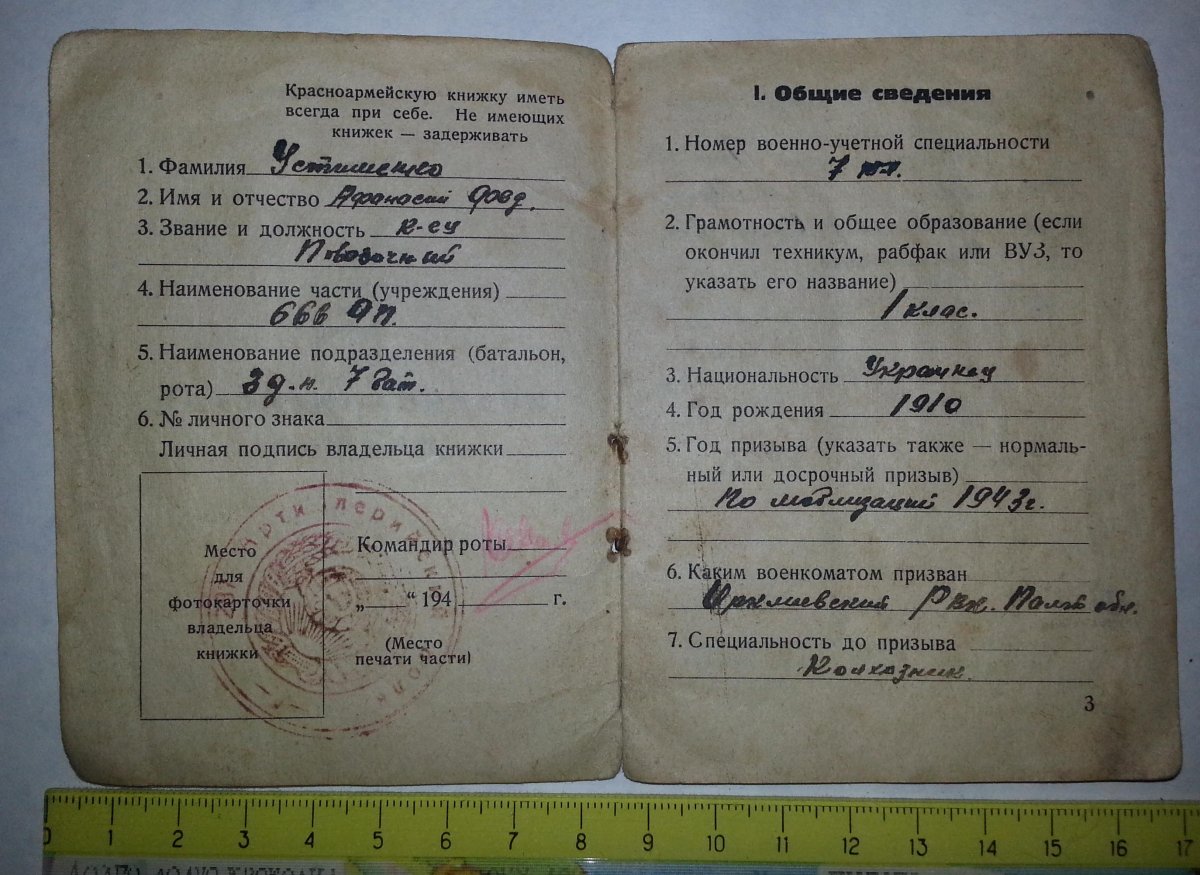 Красноармейскую книжку иметь
всегда при себе. Не имеющих
книжек — задерживать
1. Фамилия Устименко
2. Имя и отчество Афанасий
3. Звание и должность к-ец
Повозочный
4. Наименование части (учреждения)
666 АП.
5. Наименование подразделения (батальон,
рота) 3 д-н. 7 бат.
6. № личного знака
Личная подпись владельца книжки
Место
для
фотокарточки
владельца
книжки
Командир роты
„ “ 194 г.
(Место
печати части)
I. Общие сведения
1. Номер военно-учетной специальности
7
2. Грамотность и общее образование (если
окончил техникум, рабфак или ВУЗ, то
указать его название)
1 клас.
3. Национальность Украинец
4. Год рождения 1910
5. Год призыва (указать также — нормаль-
ный или досрочный призыв)
По мобилизации 1943 г.
6. Каким военкоматом призван
Иркляевский Рвк. Полт обл.
7. Специальность до призыва
Колхозник.
3
0 1 2 3 4 5 6 7 8 9 10 11 12 13 14 15 16 17